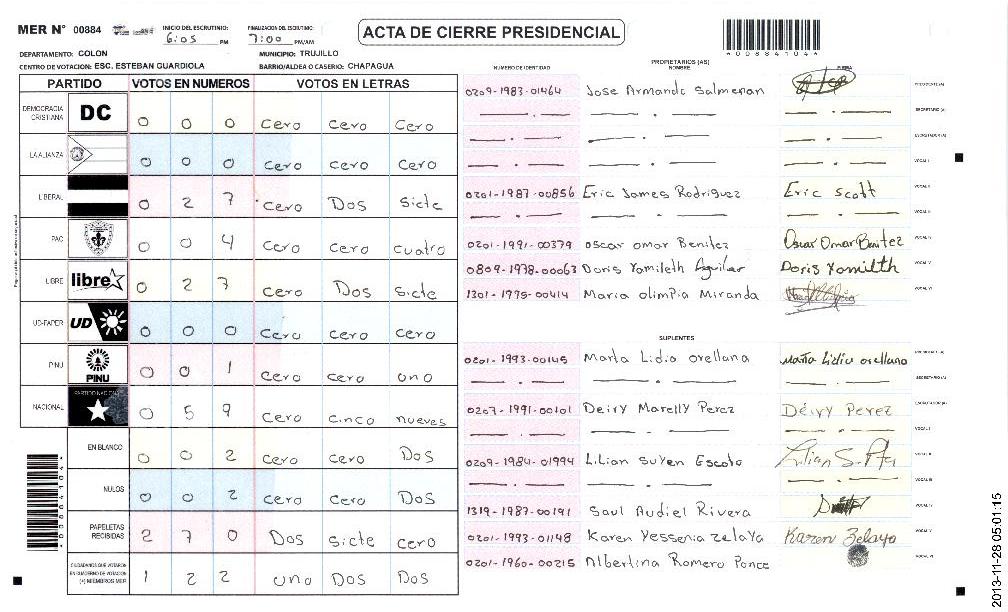 MER N° 00884
INICIO DEL ESCRUTINIO: 6:05 PM
FINALIZACION DEL ESCRUTINIO: 7:00 PM/AM
ACTA DE CIERRE PRESIDENCIAL
*0088410*
DEPARTAMENTO: COLON
MUNICIPIO: TRUJILLO
CENTRO DE VOTACION: ESC. ESTEBAN GUARDIOLA
BARRIO/ALDEA O CASERIO: CHAPAGUA
PARTIDO VOTOS EN NUMEROS VOTOS EN LETRAS
DEMOCRACIA CRISTIANA DC 0 0 0 Cero Cero Cero
LA ALIANZA 0 0 0 Cero Cero Cero
LIBERAL 0 2 7 Cero Dos Siete
PAC 0 0 4 Cero Cero cuatro
LIBRE libre 0 2 7 Cero Dos Siete
UD-FAPER UD 0 0 0 Cero Cero Cero
PINU PINU 0 0 1 Cero Cero uno
NACIONAL PARTIDO NACIONAL 0 5 9 Cero cinco nueves
EN BLANCO 0 0 2 Cero Cero Dos
NULOS 0 0 2 Cero Cero Dos
PAPELETAS RECIBIDAS 2 7 0 Dos siete cero
CIUDADANOS QUE VOTARON EN CUADERNO DE VOTACION (+) MIEMBROS MER 1 2 2 uno Dos Dos
PROPIETARIOS (AS)
NUMERO DE IDENTIDAD NOMBRE FIRMA
0209-1983-01464 Jose Armando Salmeran PRESIDENTE (A)
SECRETARIO (A)
ESCRUTADOR (A)
VOCAL I
0201-1987-00856 Eric James Rodriguez Eric Scott VOCAL II
VOCAL III
0201-1991-00379 oscar omar Benitez Oscar Omar Benitez VOCAL IV
0809-1978-00063 Doris Yomileth Aguilar Doris Yomilith VOCAL V
1301-1975-00414 Maria olimpia Miranda VOCAL VI
SUPLENTES
0201-1993-00145 Marta Lidia orellana Marta Lidia orellana PRESIDENTE (A)
SECRETARIO (A)
0207-1991-00101 Deiry Marelly Perez Deiry Perez ESCRUTADOR (A)
VOCAL I
0209-1984-01994 Lilian Suyen Escoto VOCAL II
VOCAL III
1319-1987-00191 Saul Audiel Rivera VOCAL IV
0201-1993-01148 Karen Yessenia Zelaya Karen Zelaya VOCAL V
0201-1960-00215 Albertina Romero Ponce VOCAL VI
2013-11-28 05:01:15